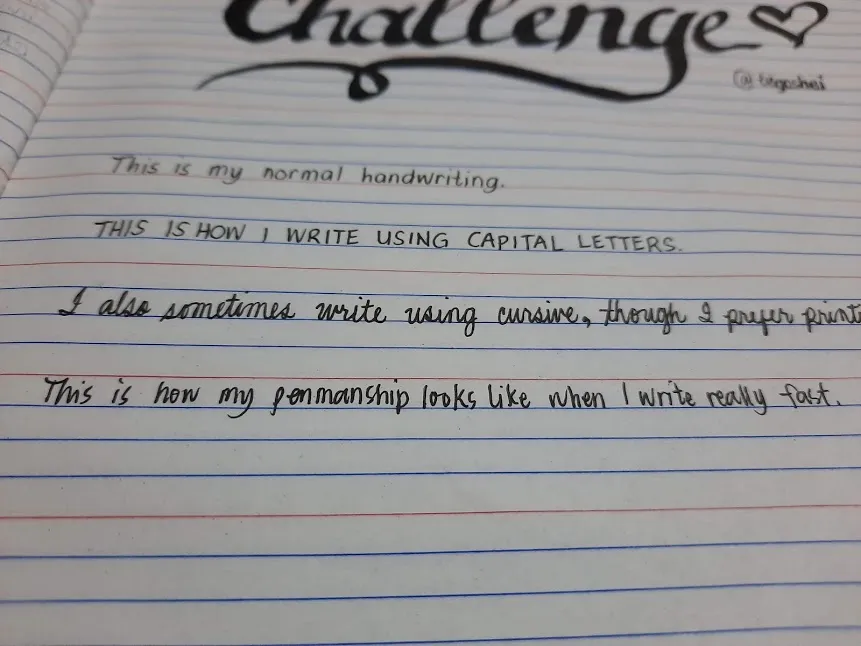 Challenge
This is my normal handwriting.
THIS IS HOW I WRITE USING CAPITAL LETTERS.
I also sometimes write using cursive, though I prefer print
This is how my penmanship looks like when I write really fast.